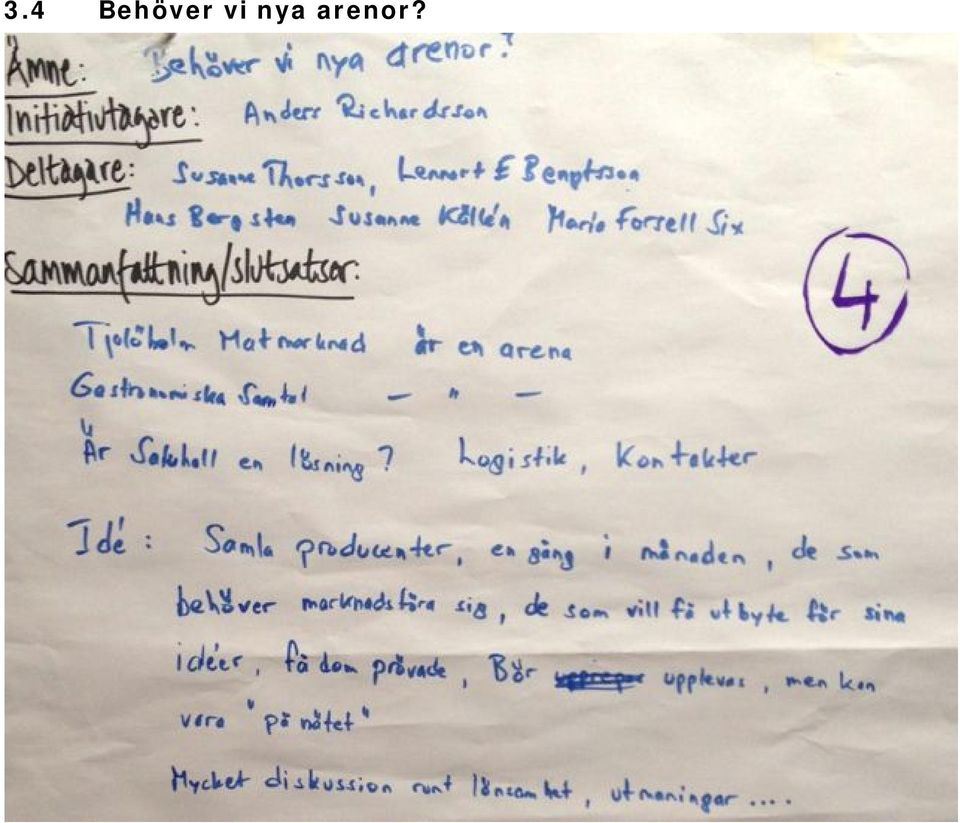 3.4 Behöver vi nya arenor?
Ämne: Behöver vi nya arenor?
Initiativtagare: Anders Richardsson
Deltagare: Susanne Thorsson, Lennart E Bengtsson
Hans Bergsten Susanne Källén Maria Forsell Six
Sammanfattning/slutsatser:
4
Tjolöholm Matmarknad är en arena
Gastronomiska Samtal – " –
Är Saluhall en lösning? Logistik, Kontakter
Idé: Samla producenter, en gång i månaden, de som
behöver marknadsföra sig, de som vill få utbyte för sina
idéer, få dom prövade, Bör upplevas, men kan
vara "på nätet"
Mycket diskussion runt lönsamhet, utmaningar....